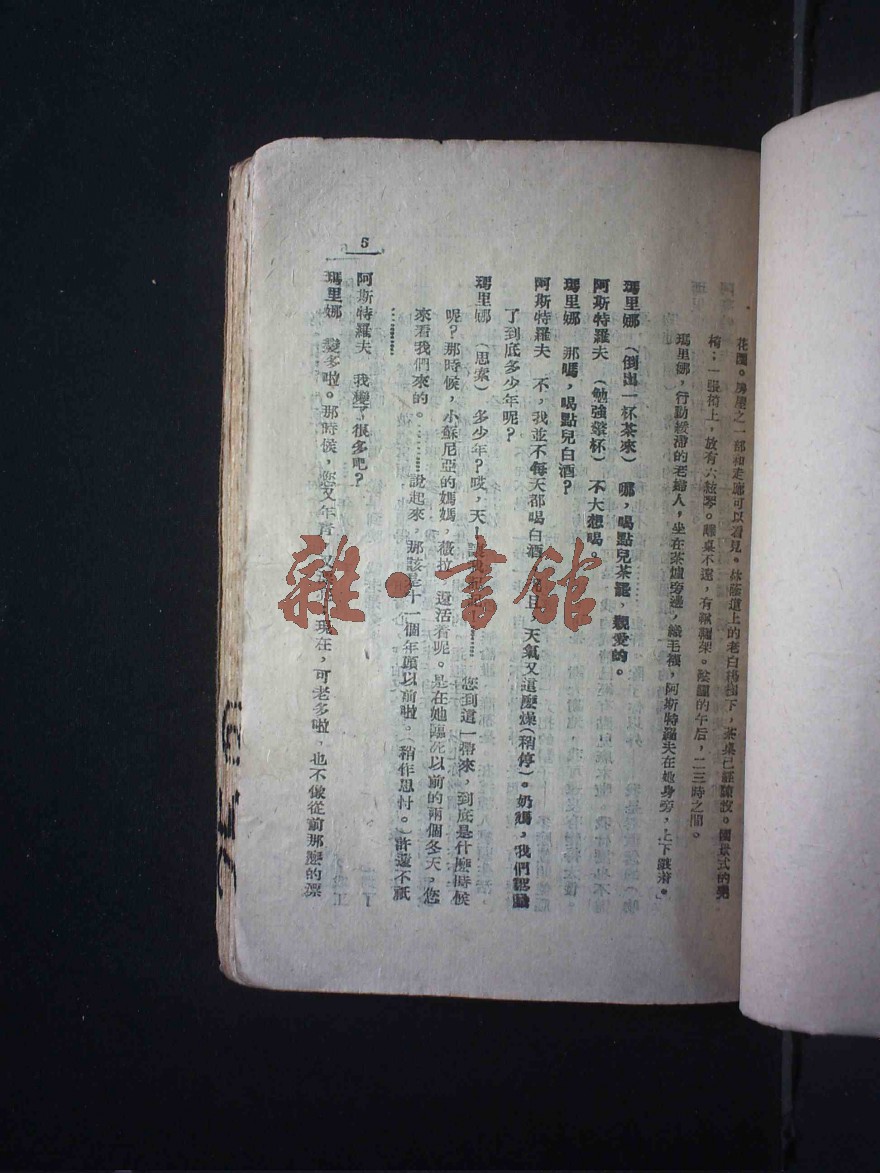 花園。房屋之一部和走廊可以看見。林蔭道上的老白楊樹下，茶桌已經陳設。國京式的凳
椅；一張椅上，放有六絃琴。離桌不遠，有鞦韆架。陰鬱的午后，二三時之間。
瑪里娜，行動緩滯的老婦人，坐在茶爐旁邊，織毛襪，阿斯特羅夫在她身旁，上下踱着。」
瑪里娜　（倒出一杯茶來）　哪，喝點兒茶罷，親愛的。
阿斯特羅夫　（勉強擎杯）　不大想喝。
瑪里娜　那嗎，喝點兒白酒？
阿斯特羅夫　不，我並不每天都喝白酒，況且，天氣又這麼燥（稍停）。奶媽，我們認識
了到底多少年呢？
瑪里娜　（思索）　多少年？哎，天！讓我　　…………您到這一帶來，到底是什麼時候
呢？那時候，小蘇尼亞的媽媽，薇拉　還活着呢。是在她臨死以前的兩個冬天，您
來看我們來的。…………說起來，那該是十一個年頭以前啦。（稍作思忖。）許還不祇
…………
阿斯特羅夫　我變了很多吧？
瑪里娜　變多啦。那時候，您又年青，又　　現在，可老多啦，也不像從前那麼的漂
5
雜·書館